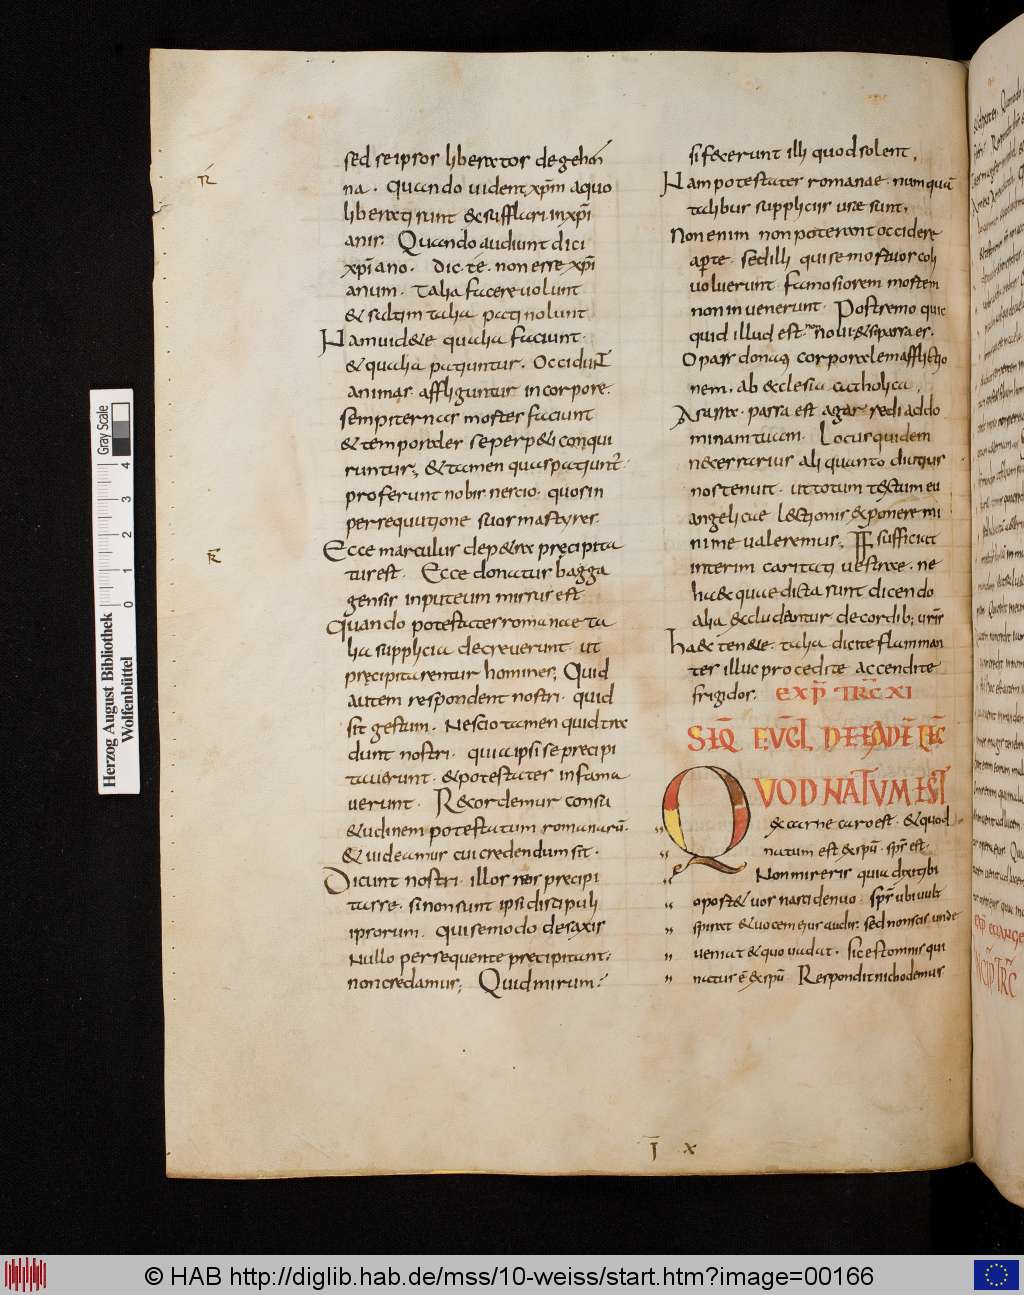 sed se ipsos liberator de gehen
na. Quando uident xpm a quo
liberati sunt & sufflari in xpi
anis. Quando audiunt dici
xpiano. Dic te. non esse xpi
anum. Talia facere uolunt
& saltim talia pati nolunt
Nam uidete qualia faciunt.
& qualia patiuntur. Occidunt
animas affliguntur in corpore.
sempiternas mortes faciunt
& temporales se perpeti conqui
runtur; & tamen quas patiunt̉
proferunt nobis nescio. quos in
persequutione suos martyres.
Ecce marculus de petra precipita
tus est. Ecce donatus bagga
gensis in puteum missus est
Quando potestates romanae ta
lia supplicia decreuerunt ut
precipitarentur homines; Quid
autem respondent nostri. quid
sit gestum. Nescio tamen quid tra
dunt nostri. quia ipsi se precipi
tauerunt. & potestates infama
uerunt. Recordemur consu
&udinem potestatum romanarū.
& uideamus cui credendum sit.
Dicunt nostri. illos nos precipi
tasse. si non sunt ipsi discipuli
ipsorum. qui se modo de saxis
Nullo persequente precipitant;
non credamus; Quid mirum?
si fecerunt illi quod solent,
Nam potestates romanae. numquā
talibus suppliciis usae sunt,
Non enim non poterant occidere
aperte. sed illi qui se mortuos coli
uoluerunt. famosiorem mortem
non inuenerunt. Postremo quic
quid illud est. non noui. & si passa es.
O pars donati corporalem afflictio
nem, ab ecclesia catholica,
A sarra. passa est agar redi ad do
minam tuam. Locus quidem
necessarius aliquanto diutius
nos tenuit. ut totum textum eu
angelicae lectionis exponere mi
nime ualeremus; sufficiat
interim caritati uestrae. ne
haec quae dicta sunt dicendo
alia excludantur de cordib; uris
haec tenete. talia dicite flamman
tes illuc procedite accendite
frigidos. EXP TRC XI
SEQ EUGL DE EADE LEC
QUOD NATUM EST
ex carne caro est. & quod
natum est ex spū. sps est.
Non mireris quia dixi tibi
oportet uos nasci denuo. sps ubi uult
spirat & uocem eius audis. sed non scis unde
ueniat & quo uadat. sic est omnis qui
natus ē ex spū Respondit nichodemus
Herzog August Bibliothek
Wolfenbüttel
0 1 2 3 4
Gray Scale
© HAB http://diglib.hab.de/mss/10-weiss/start.htm?image=00166